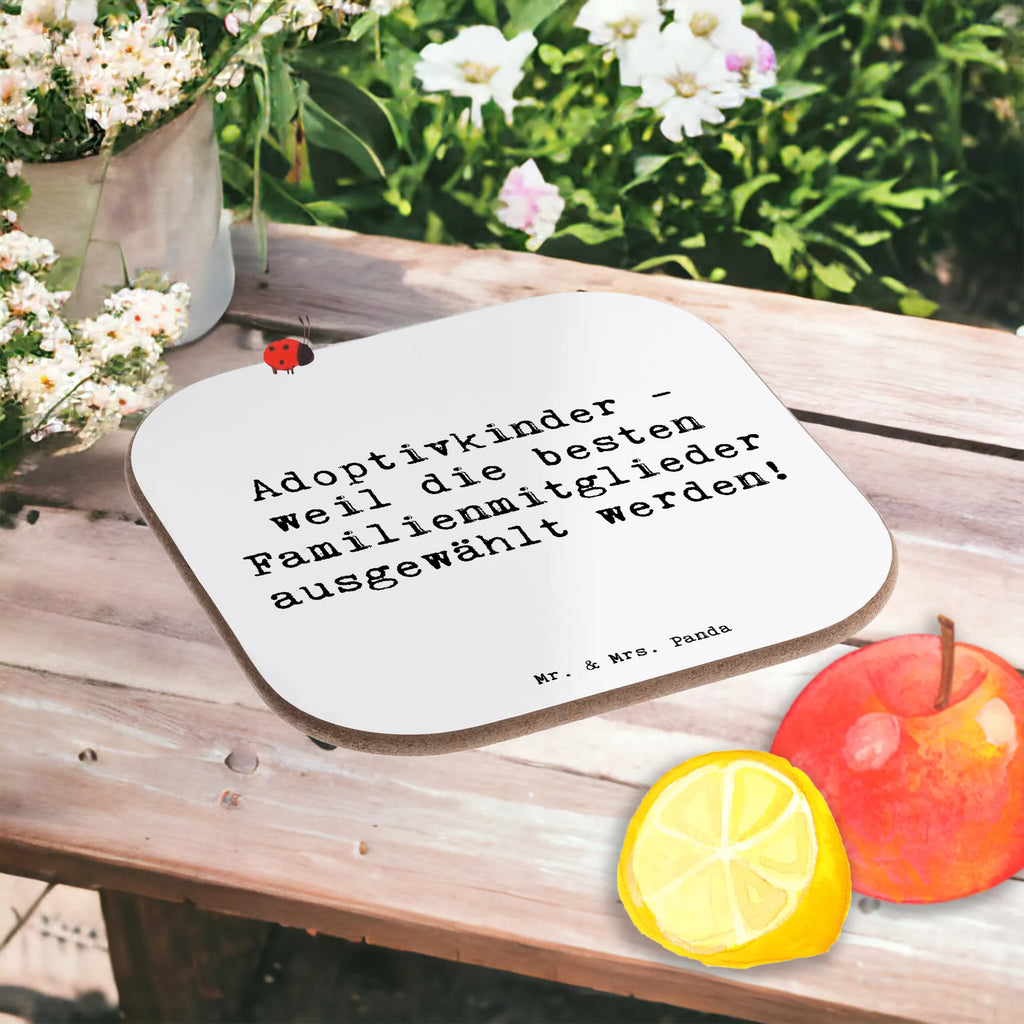 Adoptivkinder -
weil die besten
Familienmitglieder
ausgewählt werden!
Mr. & Mrs. Panda